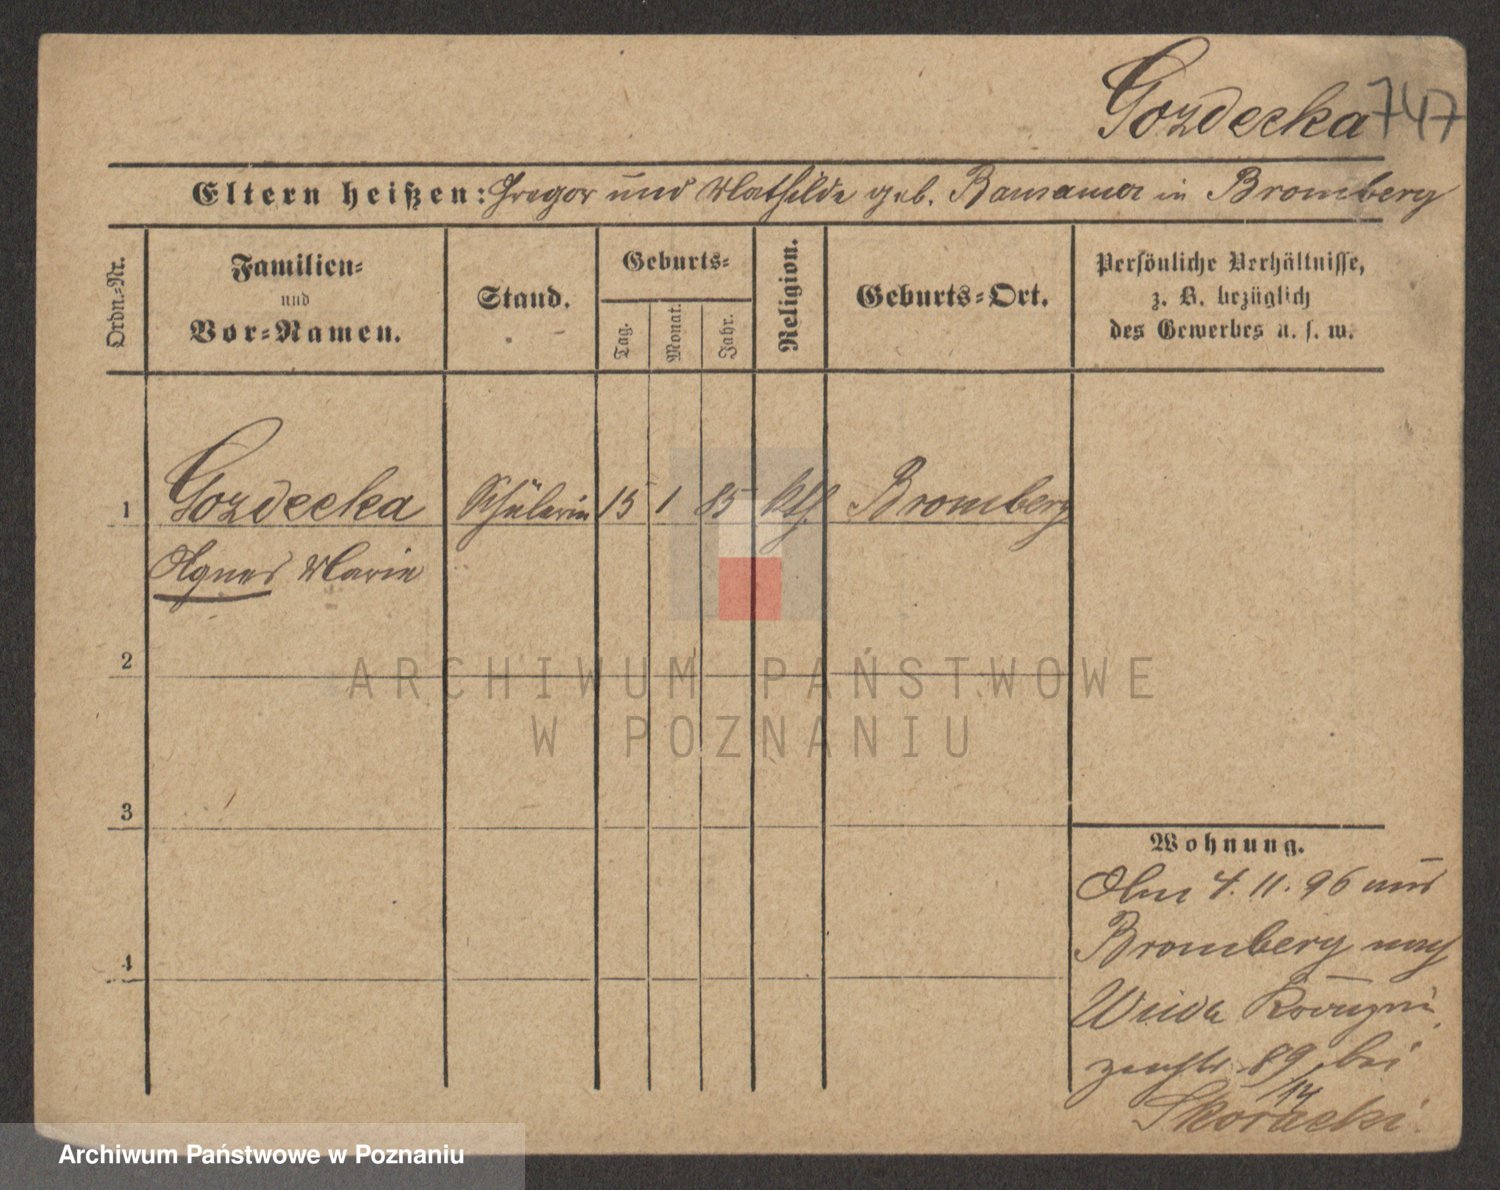 Gozdecka 747
Eltern heißen: Gregor und Mathilde geb. in Bromberg
Ordn.-Nr.
Familien-
und
Vor-Namen.
Stand.
Geburts-
Tag.
Monat.
Jahr.
Religion.
Geburts-Ort.
Persönliche Verhältnisse,
z. B. bezüglich
des Gewerbes u. s. w.
1 Gozdecka Schülerin 15 1 85 kth. Bromberg
Agnes Marie
2
ARCHIWUM PAŃSTWOWE
W POZNANIU
3
Wohnung.
Am 4. 11. 96 aus
Bromberg nach
4
Wilda Kronprin
zenstr. 89 bei
Skoracki.
Archiwum Państwowe w Poznaniu